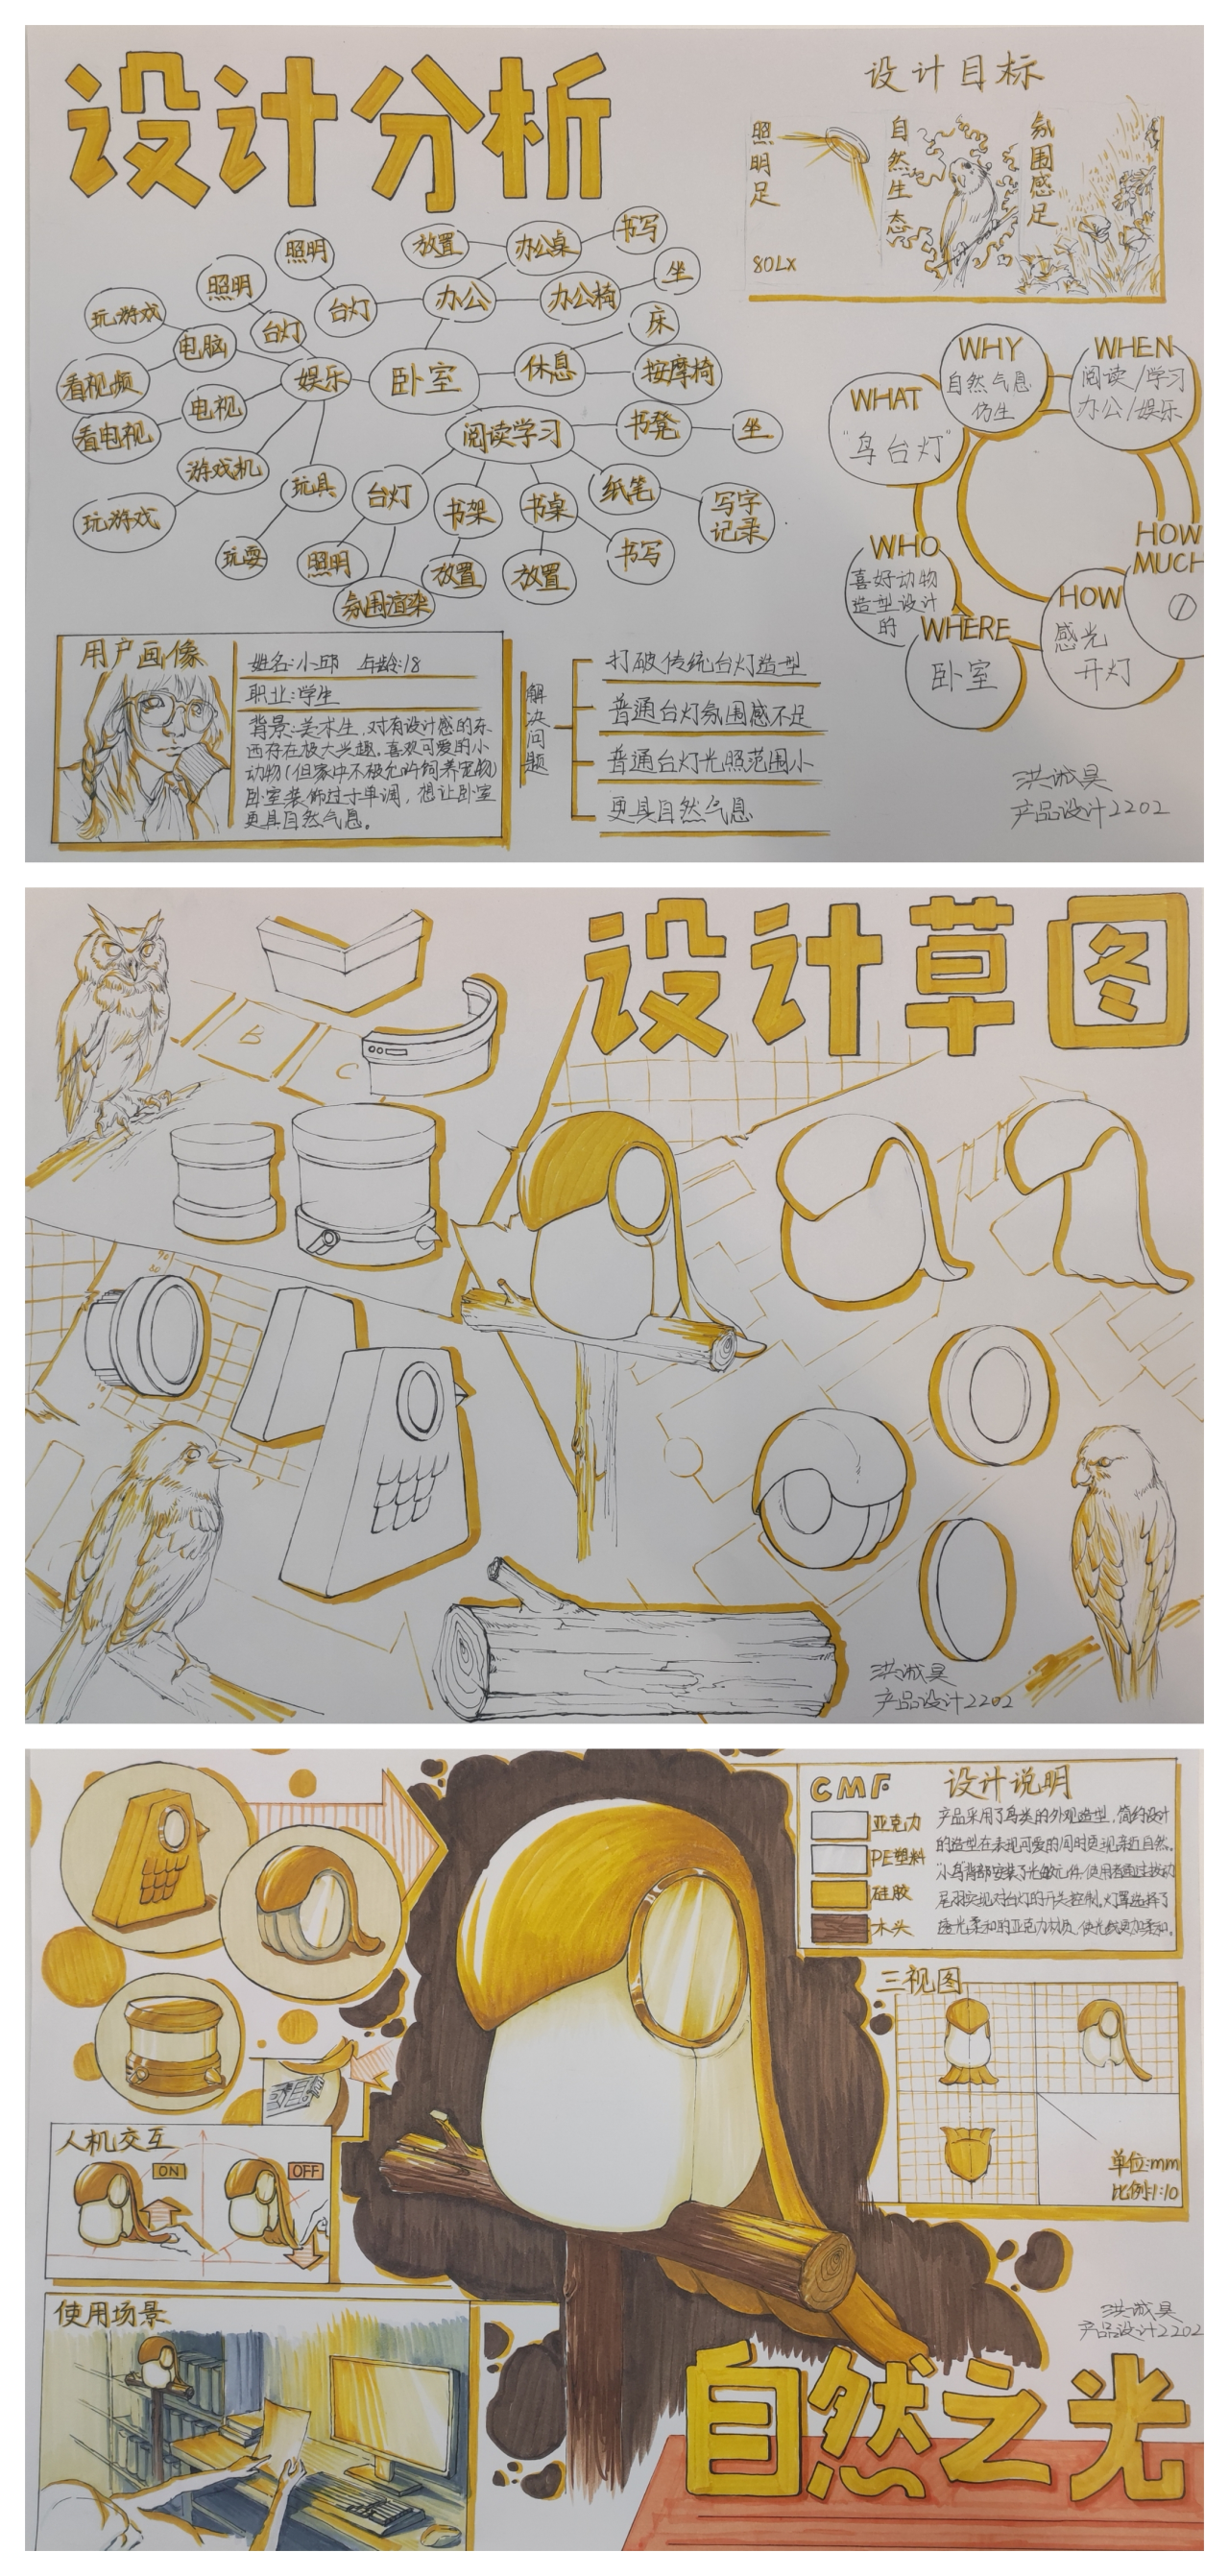 设计分析
设计目标
照明足
80LX
自然生态
氛围感足
照明
放置
办公桌
书写
照明
台灯
办公
办公椅
坐
玩游戏
电脑
台灯
床
看视频
娱乐
卧室
休息
按摩椅
电视
看电视
阅读学习
书凳
坐
游戏机
玩具
台灯
书架
书桌
纸笔
写字
记录
玩游戏
玩耍
照明
放置
放置
书写
氛围渲染
WHY
自然气息
仿生
WHEN
阅读/学习
办公/娱乐
WHAT
"鸟台灯"
WHO
喜好动物
造型设计
的
WHERE
卧室
HOW
感光
开灯
HOW
MUCH
用户画像
姓名:小邱 年龄:18
职业:学生
背景:美术生,对有设计感的东
西存在极大兴趣。喜欢可爱的小
动物(但家中不极允许饲养宠物)
卧室装饰过于单调,想让卧室
更具自然气息。
解决问题
打破传统台灯造型
普通台灯氛围感不足
普通台灯光照范围小
更具自然气息
洪诚昊
产品设计2202
设计草图
B
C
洪诚昊
产品设计2202
CMF
设计说明
亚克力
PE塑料
硅胶
木头
产品采用了鸟类的外观造型,简约设计
的造型在表现可爱的同时更现亲近自然。
小鸟背部安装了光敏元件,使用者通过拨动
尾羽实现对台灯的开关控制。灯罩选择了
透光柔和的亚克力材质,使光线更加柔和。
三视图
单位:mm
比例:1:10
人机交互
ON
OFF
使用场景
洪诚昊
产品设计2202
自然之光